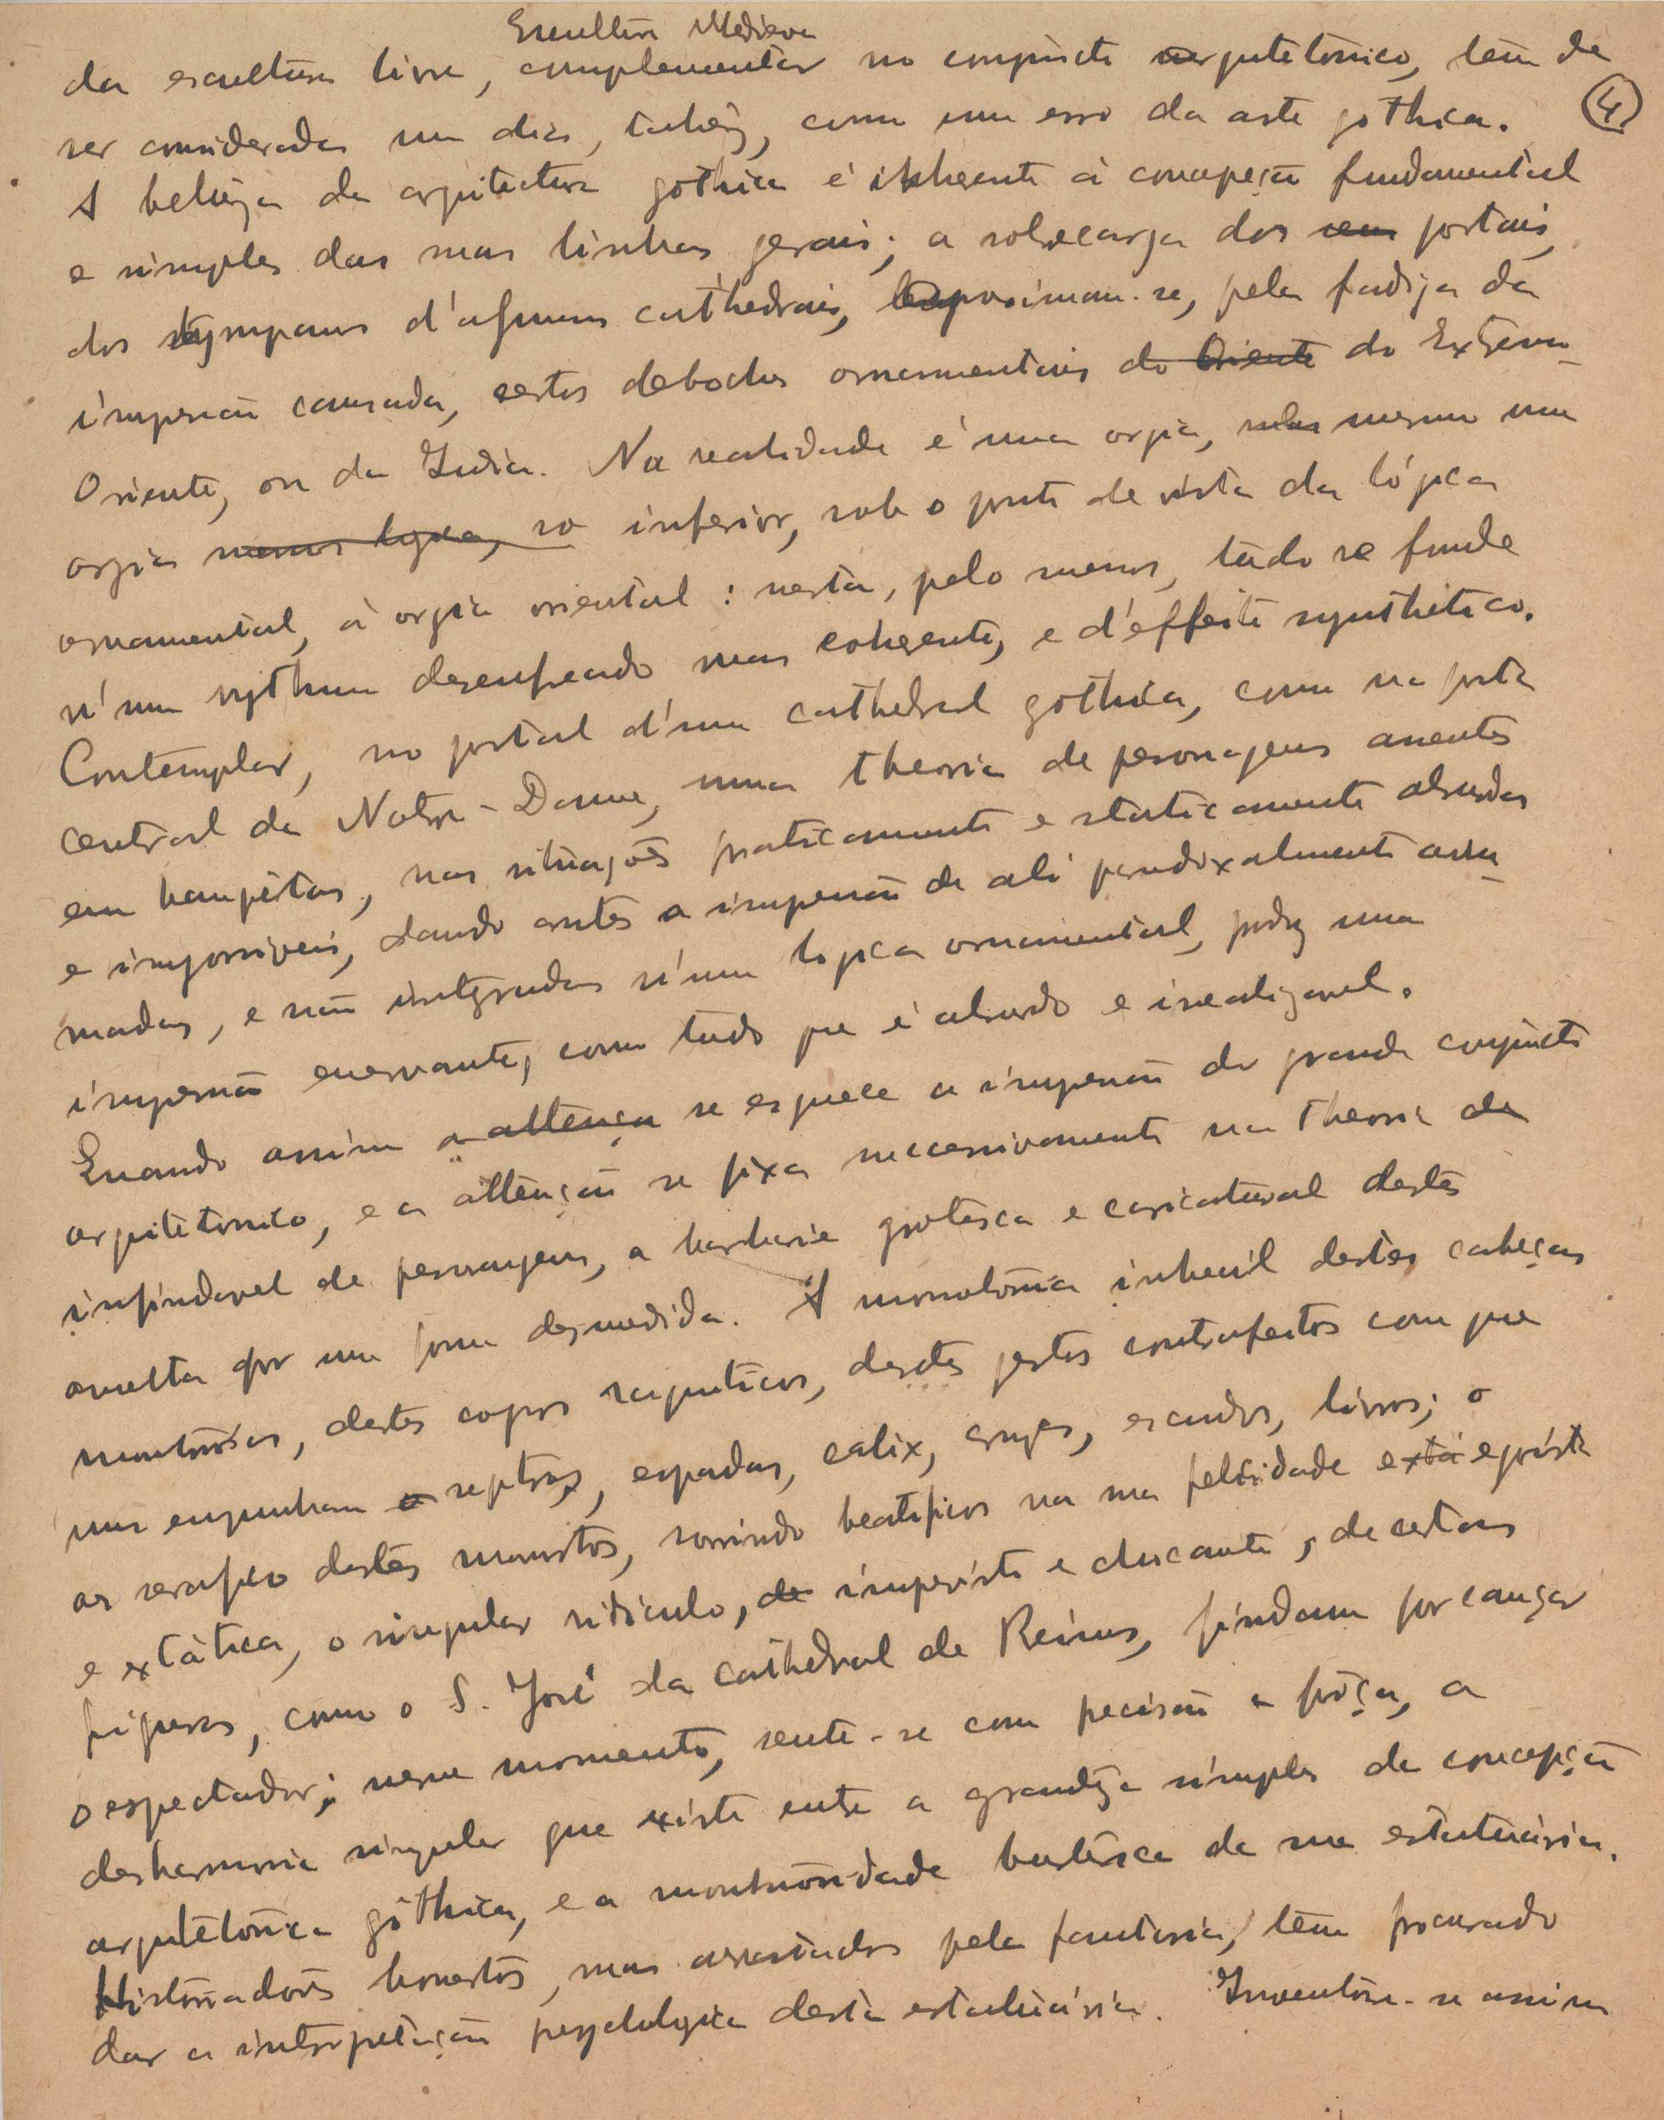 Escultura Medieva
da escultura livre, complementar no conjuncto arquitetónico, tem de
4
ser considerada um dia, talvez, como um erro da arte gothica.
A beleza da arquitectura gothica é inherente á concepção fundamental
e simples das suas linhas gerais; a sobrecarga dos seus portais,
dos tympanos d'algumas cathedrais, aproximam-se, pela fadiga da
impressão causada, certos deboches ornamentais do Oriente do Extremo
Oriente, ou da India. Na realidade é uma orgia, mas mesmo uma
orgia menos logica, so inferior, sob o ponto de vista da lógica
ornamental, á orgia oriental: nesta, pelo menos, tudo se funde
n'um rythmo desenfreado mas coherente, e d'effeito synthetico.
Contemplar, no portal d'uma cathedral gothica, como na porta
central da Notre-Dame, uma theoria de personagens assentes
em banquetas, nas situações praticamente e staticamente absurdas
e impossiveis, dando antes a impressão de ali paradoxalmente arru-
madas, e não integradas n'uma logica ornamental, produz uma
impressão enervante, como tudo que é absurdo e irrealizavel.
Quando assim a attença se esquece a impressão do grande conjuncto
arquitetonico, e a attenção se fixa successivamente na theoria da
infindavel de personagens, a barbarie grotesca e caricatural destes
avulta por uma forma desmedida. A monotonia imbecil destas cabeças
monstruosas, destes corpos raquiticos, destes gestos contrafeitos com que
uns empunham o septros, espadas, calix, cruzes, escudos, livros; o
ar serafico destes monstros, sorrindo beatificos na sua felicidade exta egoista
e extática, o singular ridiculo, de imprevisto e chocante, de certas
figuras, como o S. José da cathedral de Reims, findam por cançar
o espectador; nesse momento, sente-se com precisão e força, a
desharmonia singular que existe entre a grandeza simples da concepção
arquitetónica gothica, e a monstruosidade burlesca da sua estatuária.
Historiadores honestos, mas arrastados pela fantasia, têm procurado
dar a interpretação psychologica desta estatuária. Inventou-se assim